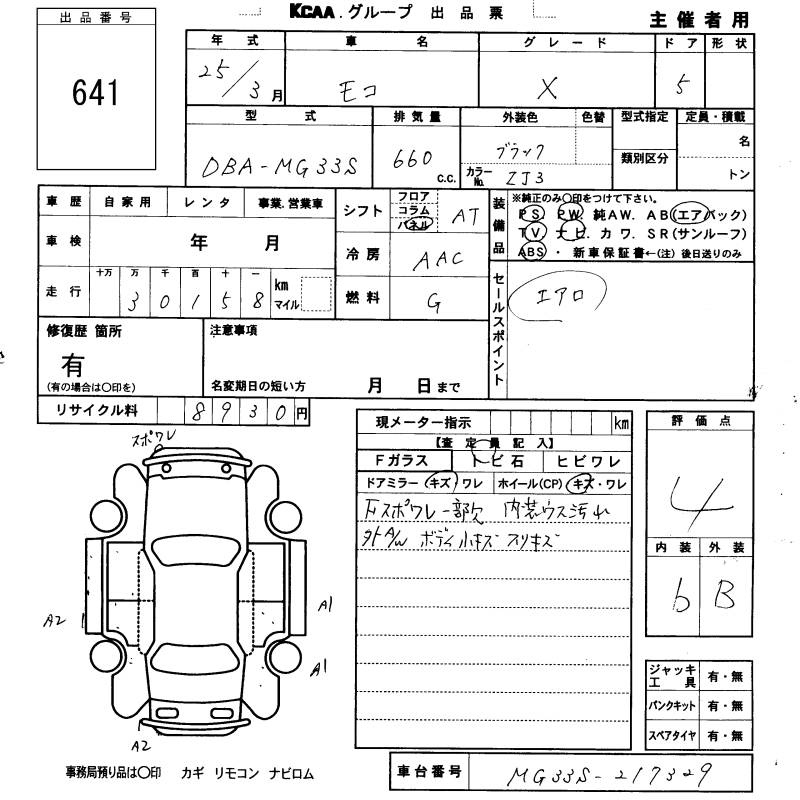 KCAA.グループ 出品票
主催者用
出品番号
641
年式 車名 グレード ドア 形状
25/3月 モコ X 5
型式 排気量 外装色 色替 型式指定 定員・積載
DBA-MG33S 660 c.c. ブラック 類別区分 名
カラーNo. ZJ3 トン
車歴 自家用 レンタ 事業.営業車
シフト フロア コラム パネル AT
車検 年 月
冷房 AAC
走行 十万 万 千 百 十 一 km マイル
3 0 1 5 8
燃料 G
装備品
※純正のみ○印をつけて下さい。
PS PW. 純AW. AB(エアバック)
TV. ナビ. カワ. SR(サンルーフ)
ABS ・ 新車保証書←(注) 後日送りのみ
セールスポイント
エアロ
修復歴 箇所
有
(有の場合は○印を)
注意事項
名変期日の短い方 月 日まで
リサイクル料 8 9 3 0 円
現メーター指示 km
【査定員記入】
Fガラス トビ石 ヒビワレ
ドアミラー キズ・ワレ ホイール(CP) キズ・ワレ
Fスポワレ一部欠 内装ウス汚れ
外A/W ボディ小キズ スリキズ
評価点
4
内装 外装
b B
スポワレ
A2
A1
A1
A2
ジャッキ工具 有・無
パンクキット 有・無
スペアタイヤ 有・無
事務局預り品は○印 カギ リモコン ナビロム
車台番号 MG33S-217329